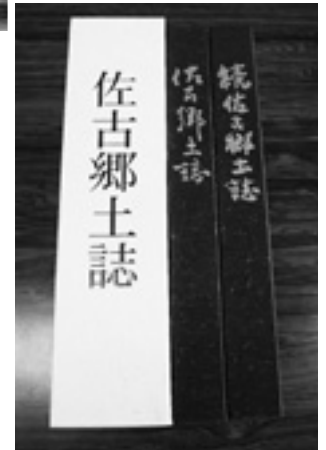 続佐古郷土誌
佐古郷土誌
佐古郷土誌